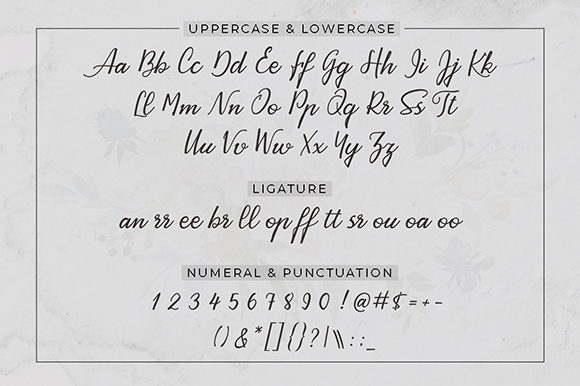 UPPERCASE & LOWERCASE
Aa Bb Cc Dd Ee Ff Gg Hh Ii Jj Kk
Ll Mm Nn Oo Pp Qq Rr Ss Tt
Uu Vv Ww Xx Yy Zz
LIGATURE
an rr ee br ll op ff tt sr ou oa oo
NUMERAL & PUNCTUATION
1 2 3 4 5 6 7 8 9 0 ! @ # $ = + -
( ) & * [ ] { } ? | \ \ : : _